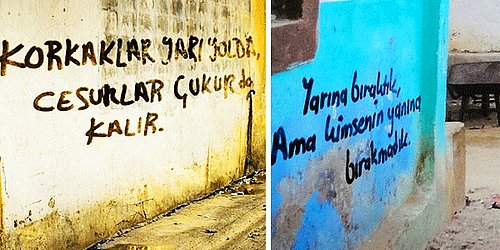 KORKAKLAR YARI YOLDA,
CESURLAR ÇUKUR da
KALIR.
Yarına bıraktık,
Ama kimsenin yanına
bırakmadık.